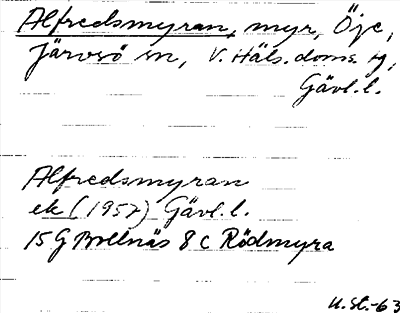 Alfredsmyran, myr, Öje,
Järvsö sn, V. Häls. doms. hg,
Gävl. l.
Alfredsmyran
ek (1957) Gävl. l.
15 G Bollnäs 8 c Rödmyra
U. Sl. -63